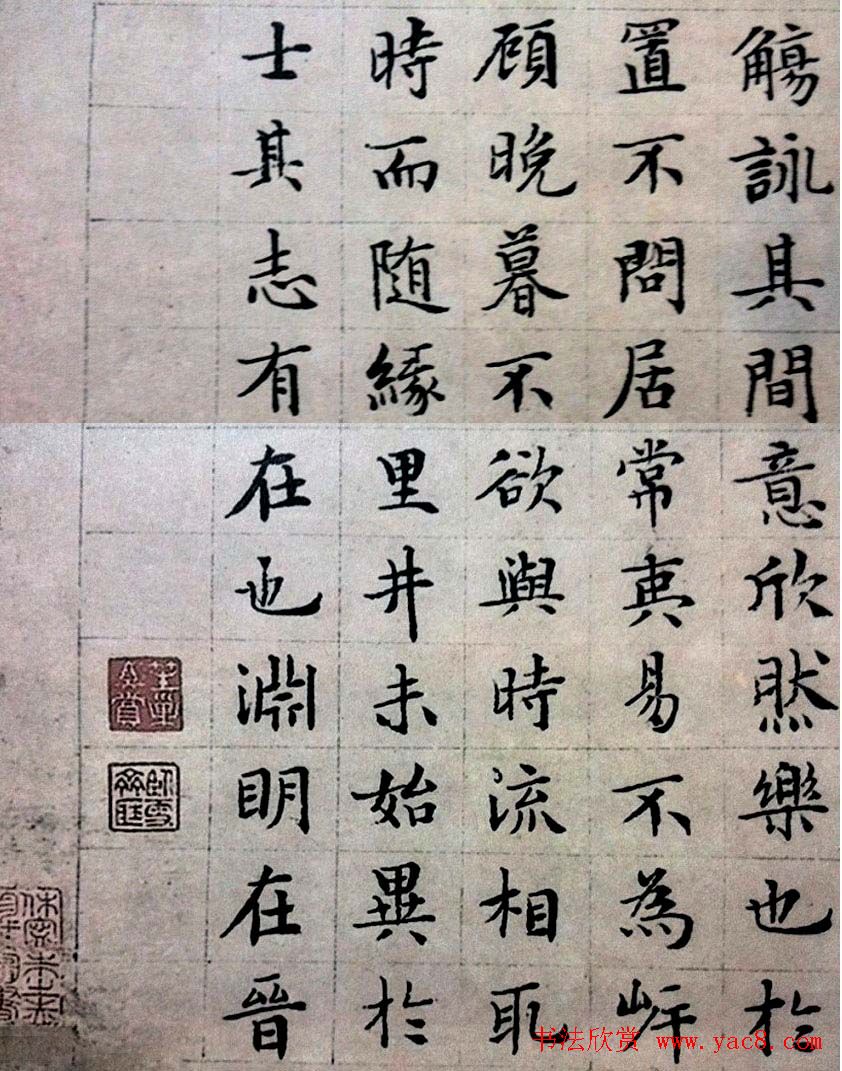 觴詠其間意欣然樂也於
置不問居常夷易不為岸
顧晚暮不欲與時流相取
時而隨緣里井未始異於
士其志有在也淵明在晉
书法欣赏 www.yac8.com